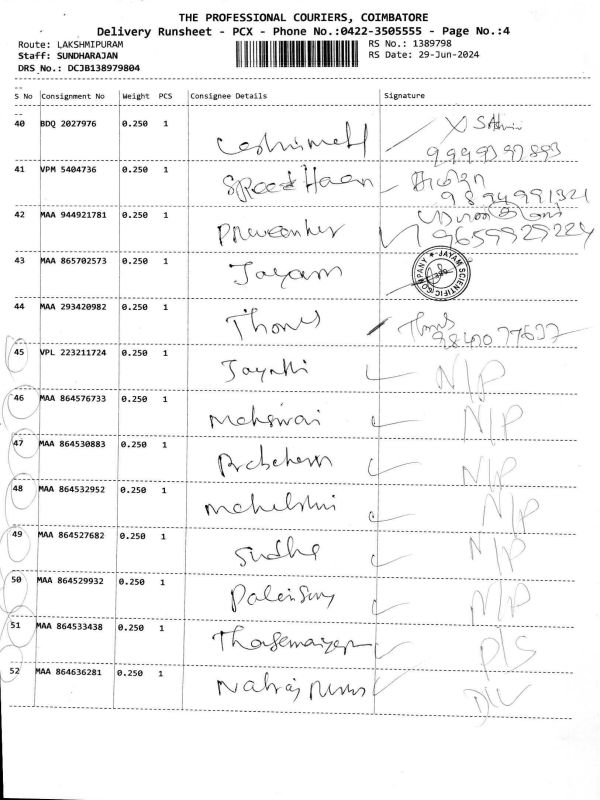 THE PROFESSIONAL COURIERS, COIMBATORE
Delivery Runsheet - PCX - Phone No.:0422-3505555 - Page No.:4
Route: LAKSHMIPURAM RS No.: 1389798
Staff: SUNDHARAJAN RS Date: 29-Jun-2024
DRS No.: DCJB138979804
S No Consignment No Weight PCS Consignee Details Signature
40 BDQ 2027976 0.250 1
41 VPM 5404736 0.250 1
42 MAA 944921781 0.250 1
9659929224
43 MAA 865702573 0.250 1 Jayam JAYAM SCIENTIFIC COMPANY
44 MAA 293420982 0.250 1 Thomes
45 VPL 223211724 0.250 1 Jayathi N/P
46 MAA 864576733 0.250 1 N/P
47 MAA 864530883 0.250 1 N/P
48 MAA 864532952 0.250 1 N/P
49 MAA 864527682 0.250 1 Sudha N/P
50 MAA 864529932 0.250 1 N/P
51 MAA 864533438 0.250 1 D/S
52 MAA 864636281 0.250 1